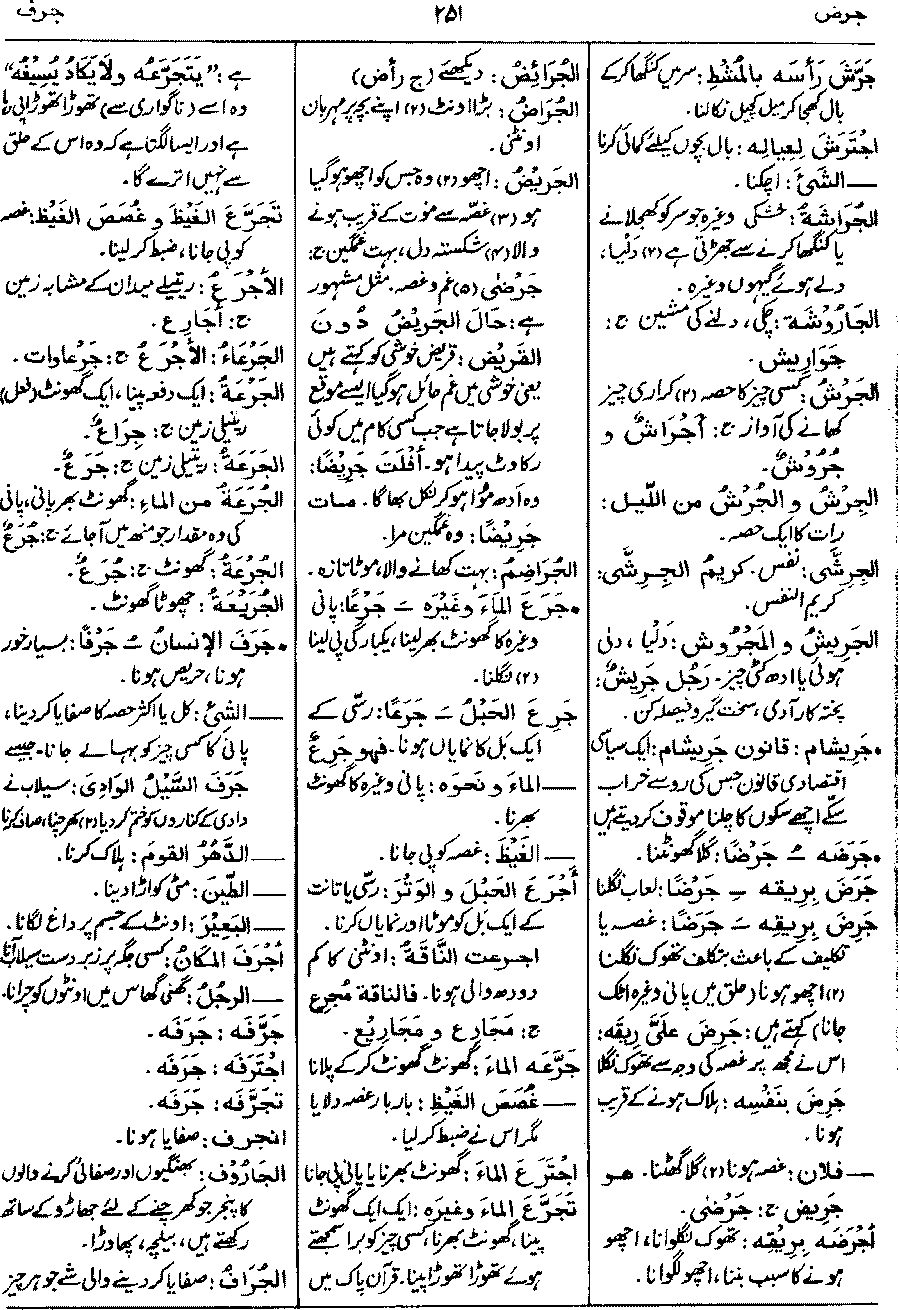 جرض ۲۵۱ جرف
جَرَّشَ رَأْسَه بِالْمُشْطِ: سر میں کنگھا کرکے
بال کھجا کر میل کچیل نکالنا۔
اجْتَرَشَ لِعِيالِه: بال بچوں کیلئے کمائی کرنا
— الشَّیْءَ: اچکنا۔
الجُرَاشَةُ: خشکی وغیرہ جو سر کو کھجلانے
یا کنگھا کرنے سے جھڑتی ہے (۲) دَلیا،
دلے ہوئے گیہوں وغیرہ۔
الجَارُوشَة: چکی، دلنے کی مشین ج:
جَوَارِیش۔
الجَرْشُ: کسی چیز کا حصہ (۲) کراری چیز
کھانے کی آواز ج: أَجْرَاشٌ و
جُرُوْشٌ۔
الجِرْشُ و الجُرْشُ من اللّیل:
رات کا ایک حصہ۔
الجِرِشَّى: نفس۔ کریمُ الجِرِشَّى:
کریم النفس۔
الجَرِيشُ و المَجْرُوش: دَلیا، دلی
ہوئی یا ادھ کٹی چیز۔ رَجُل جَرِیشٌ:
پختہ کار آدمی، سخت گیر و فیصلہ کن۔
• جَریشام: قانون جَریشام: ایک سیاسی
اقتصادی قانون جس کی رو سے خراب
سکے اچھے سکوں کا چلنا موقوف کر دیتے ہیں
• جَرَضَه ـُ جَرْضًا: گلا گھونٹنا۔
جَرَضَ بِرِیقه ـِ جَرْضًا: لعاب نگلنا
جَرِضَ بِرِیقِه ـَ جَرَضًا: غصہ یا
تکلیف کے باعث بتکلف تھوک نگلنا
(۲) اچھو ہونا (حلق میں پانی وغیرہ اٹک
جانا) کہتے ہیں: جَرِضَ علیَّ رِیقَه:
اس نے مجھ پر غصہ کی وجہ سے تھوک نگلا
جَرِضَ بنَفْسِه: ہلاک ہونے کے قریب
ہونا۔
— فلان: غصہ ہونا (۲) گلا گھٹنا۔ ھو
جَرِیض ج: جَرْضٰی۔
أَجْرَضَه بِرِیْقِه: تھوک نگلوانا، اچھو
ہونے کا سبب بننا، اچھو لگوانا۔
الجُرَائِضُ: دیکھئے (ج ر أ ض)
الجُرَاضُ: بڑا اونٹ (۲) اپنے بچہ پر مہربان
اونٹنی۔
الجَرِیضُ: اچھو (۲) وہ جس کو اچھو ہو گیا
ہو (۳) غصّہ سے موت کے قریب ہونے
والا (۴) شکستہ دل، بہت غمگین ج:
جَرْضٰی (۵) غم و غصہ۔ مثل مشہور
ہے: حَالَ الجَرِیضُ دُونَ
القَرِیض: قریض خوشی کو کہتے ہیں
یعنی خوشی میں غم حائل ہو گیا ایسے موقع
پر بولا جاتا ہے جب کسی کام میں کوئی
رکاوٹ پیدا ہو۔ أَفْلَتَ جَرِیضًا:
وہ ادھ مُوا ہو کر نکل بھاگا۔ مات
جَرِیضًا: وہ غمگین مرا۔
الجُرَاضِمُ: بہت کھانے والا، موٹا تازہ۔
• جَرَعَ المَاءَ وغَيْرَه ـَ جَرْعًا: پانی
وغیرہ کا گھونٹ بھر لینا، یکبارگی پی لینا
(۲) نگلنا۔
جَرِعَ الحَبْلُ ـَ جَرَعًا: رسّی کے
ایک بَل کا نمایاں ہونا۔ فھو جَرِعٌ
— الماءَ و نَحوَه: پانی وغیرہ کا گھونٹ
بھرنا۔
— الغَیْظَ: غصہ کو پی جانا۔
أَجْرَعَ الحَبْلَ و الوَتَرَ: رسّی یا تانت
کے ایک بل کو موٹا اور نمایاں کرنا۔
اجرعت النَّاقَةُ: اونٹنی کا کم
دودھ والی ہونا۔ فالناقة مُجْرِع
ج: مَجَارِع و مَجَارِیْع۔
جَرَّعَه الماءَ: گھونٹ گھونٹ کرکے پلانا
— غُصَصَ الغَیْظِ: بار بار غصہ دلایا
مگر اس نے ضبط کر لیا۔
اجْتَرَعَ الماءَ: گھونٹ بھرنا یا پانی پی جانا
تَجَرَّعَ الماءَ وغَیرَه: ایک ایک گھونٹ
پینا، گھونٹ بھرنا، کسی چیز کو برا سمجھتے
ہوئے تھوڑا تھوڑا پینا۔ قرآن پاک میں
ہے: "یَتَجَرَّعُه ولَا یَکَادُ یُسِیْغُه"
وہ اسے (ناگواری سے) تھوڑا تھوڑا پی رہا
ہے اور ایسا لگتا ہے کہ وہ اس کے حلق
سے نہیں اترے گا۔
تَجَرَّعَ الغَیْظَ و غُصَصَ الغَیْظ: غصہ
کو پی جانا، ضبط کر لینا۔
الأَجْرَعُ: ریتیلے میدان کے مشابہ زمین
ج: أَجَارِع۔
الجَرْعَاءُ: الأَجْرَعُ ج: جَرْعَاوات۔
الجَرْعَةُ: ایک دفعہ پینا، ایک گھونٹ (فعل)
ریتیلی زمین ج: جِرَاعٌ۔
الجَرَعَةُ: ریتیلی زمین ج: جَرَعٌ۔
الجُرْعَةُ من الماء: گھونٹ بھر پانی، پانی
کی وہ مقدار جو منھ میں آجائے ج: جُرَعٌ
الجُرْعَةُ: گھونٹ ج: جُرَعٌ۔
الجُرَیْعَةُ: چھوٹا گھونٹ۔
• جَرَفَ الإنسانُ ـُ جَرْفًا: بسیار خور
ہونا، حریص ہونا۔
— الشیْءَ: کل یا اکثر حصہ کا صفایا کر دینا،
پانی کا کسی چیز کو بہا لے جانا۔ جیسے
جَرَفَ السَّیْلُ الوادِیَ: سیلاب نے
وادی کے کناروں کو ختم کر دیا (۲) کھرچنا، صاف کرنا
— الدَّهْرُ القَومَ: ہلاک کرنا۔
— الطِّیْنَ: مٹی کو اڑا دینا۔
— البَعِیْرَ: اونٹ کے جسم پر داغ لگانا۔
أجْرَفَ المَکَانُ: کسی جگہ پر زبردست سیلاب آنا
— الرجُلُ: گھنی گھاس میں اونٹوں کو چرانا۔
جَرَّفَه: جَرَفَه۔
اجْتَرَفَه: جَرَفَه۔
تَجَرَّفَه: جَرَفَه۔
انجرف: صفایا ہونا۔
الجَارُوْف: بھنگیوں اور صفائی کرنے والوں
کا پنجر جو کھرچنے کے لئے جھاڑو کے ساتھ
رکھتے ہیں، بیلچہ، پھاوڑا۔
الجُرَافُ: صفایا کر دینے والی شے جو ہر چیز